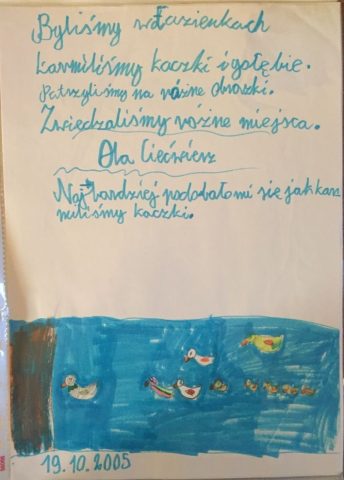 Byliśmy w Łazienkach
Karmiliśmy kaczki i gołębie.
Patrzyliśmy na różne obrazki.
Zwiedzaliśmy różne miejsca.
Ola
Najbardziej podobało mi się jak kar
miliśmy kaczki.
19.10.2005